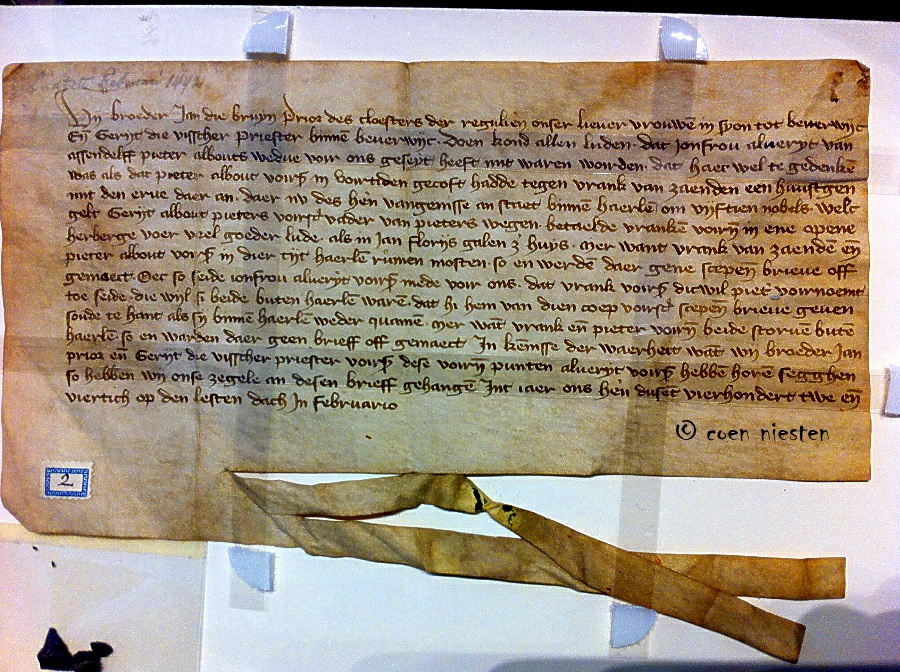 Februarii 1442
Wij broeder Jan die bruyn Prior des cloesters der regulieren onser liever vrouwen in syon tot beverwijc
En̄ Gerijt die visscher priester binnē beverwijc. Doen kond allen luden. dat jonfrou alveryt van
assendelff pieter albouts wedue voir ons geseyt heeft mit waren worden. dat haer wel te gedenkē
was als dat pieter albout voirs̄ in voirtiden gecoft hadde tegen vrank van zaenden een huustgen
mit den erve daer an. daer nv des hēn vangenisse an staet binnē haerlē om vijftien nobels. welc
gelt Gerijt albout pieters voirs̄ vader van pieters wegen betaelde vranken voirn̄ in ene opene
herberge voer veel goeder lude als in Jan florijs galen z̄ huys. mer want vrank van zaendē en̄
pieter albout voirs̄ in dier tijt haerlē rumen mosten. so en werdē daer gene scepen̄ brieve off
gemaect. Oec so seide jonfrou alveryt voirs̄ mede voir ons. dat vrank voirs̄ dicwil piet̄ voirnoemt
toe seide. die wijl si beide buten haerlē warē. dat hi hem van dien coep voirs̄ scepen̄ brieve geven
soude te hant als sy binnē haerlē weder quamē. mer wāt vrank en̄ pieter voirn̄ beide storvē butē
haerlē so en warden daer geen brieff off gemaect In kēnisse der waerheit wāt wij broeder Jan
prior en̄ Gerijt die visscher priester voirs̄ dese voirn̄ punten alveryt voirs̄ hebbē horē segghen
so hebben wij onse zegele an desen brieff gehangē Int jaer ons hēn dusēt vierhondert twe en̄
viertich op den lesten dach in Februario
© coen niesten
2